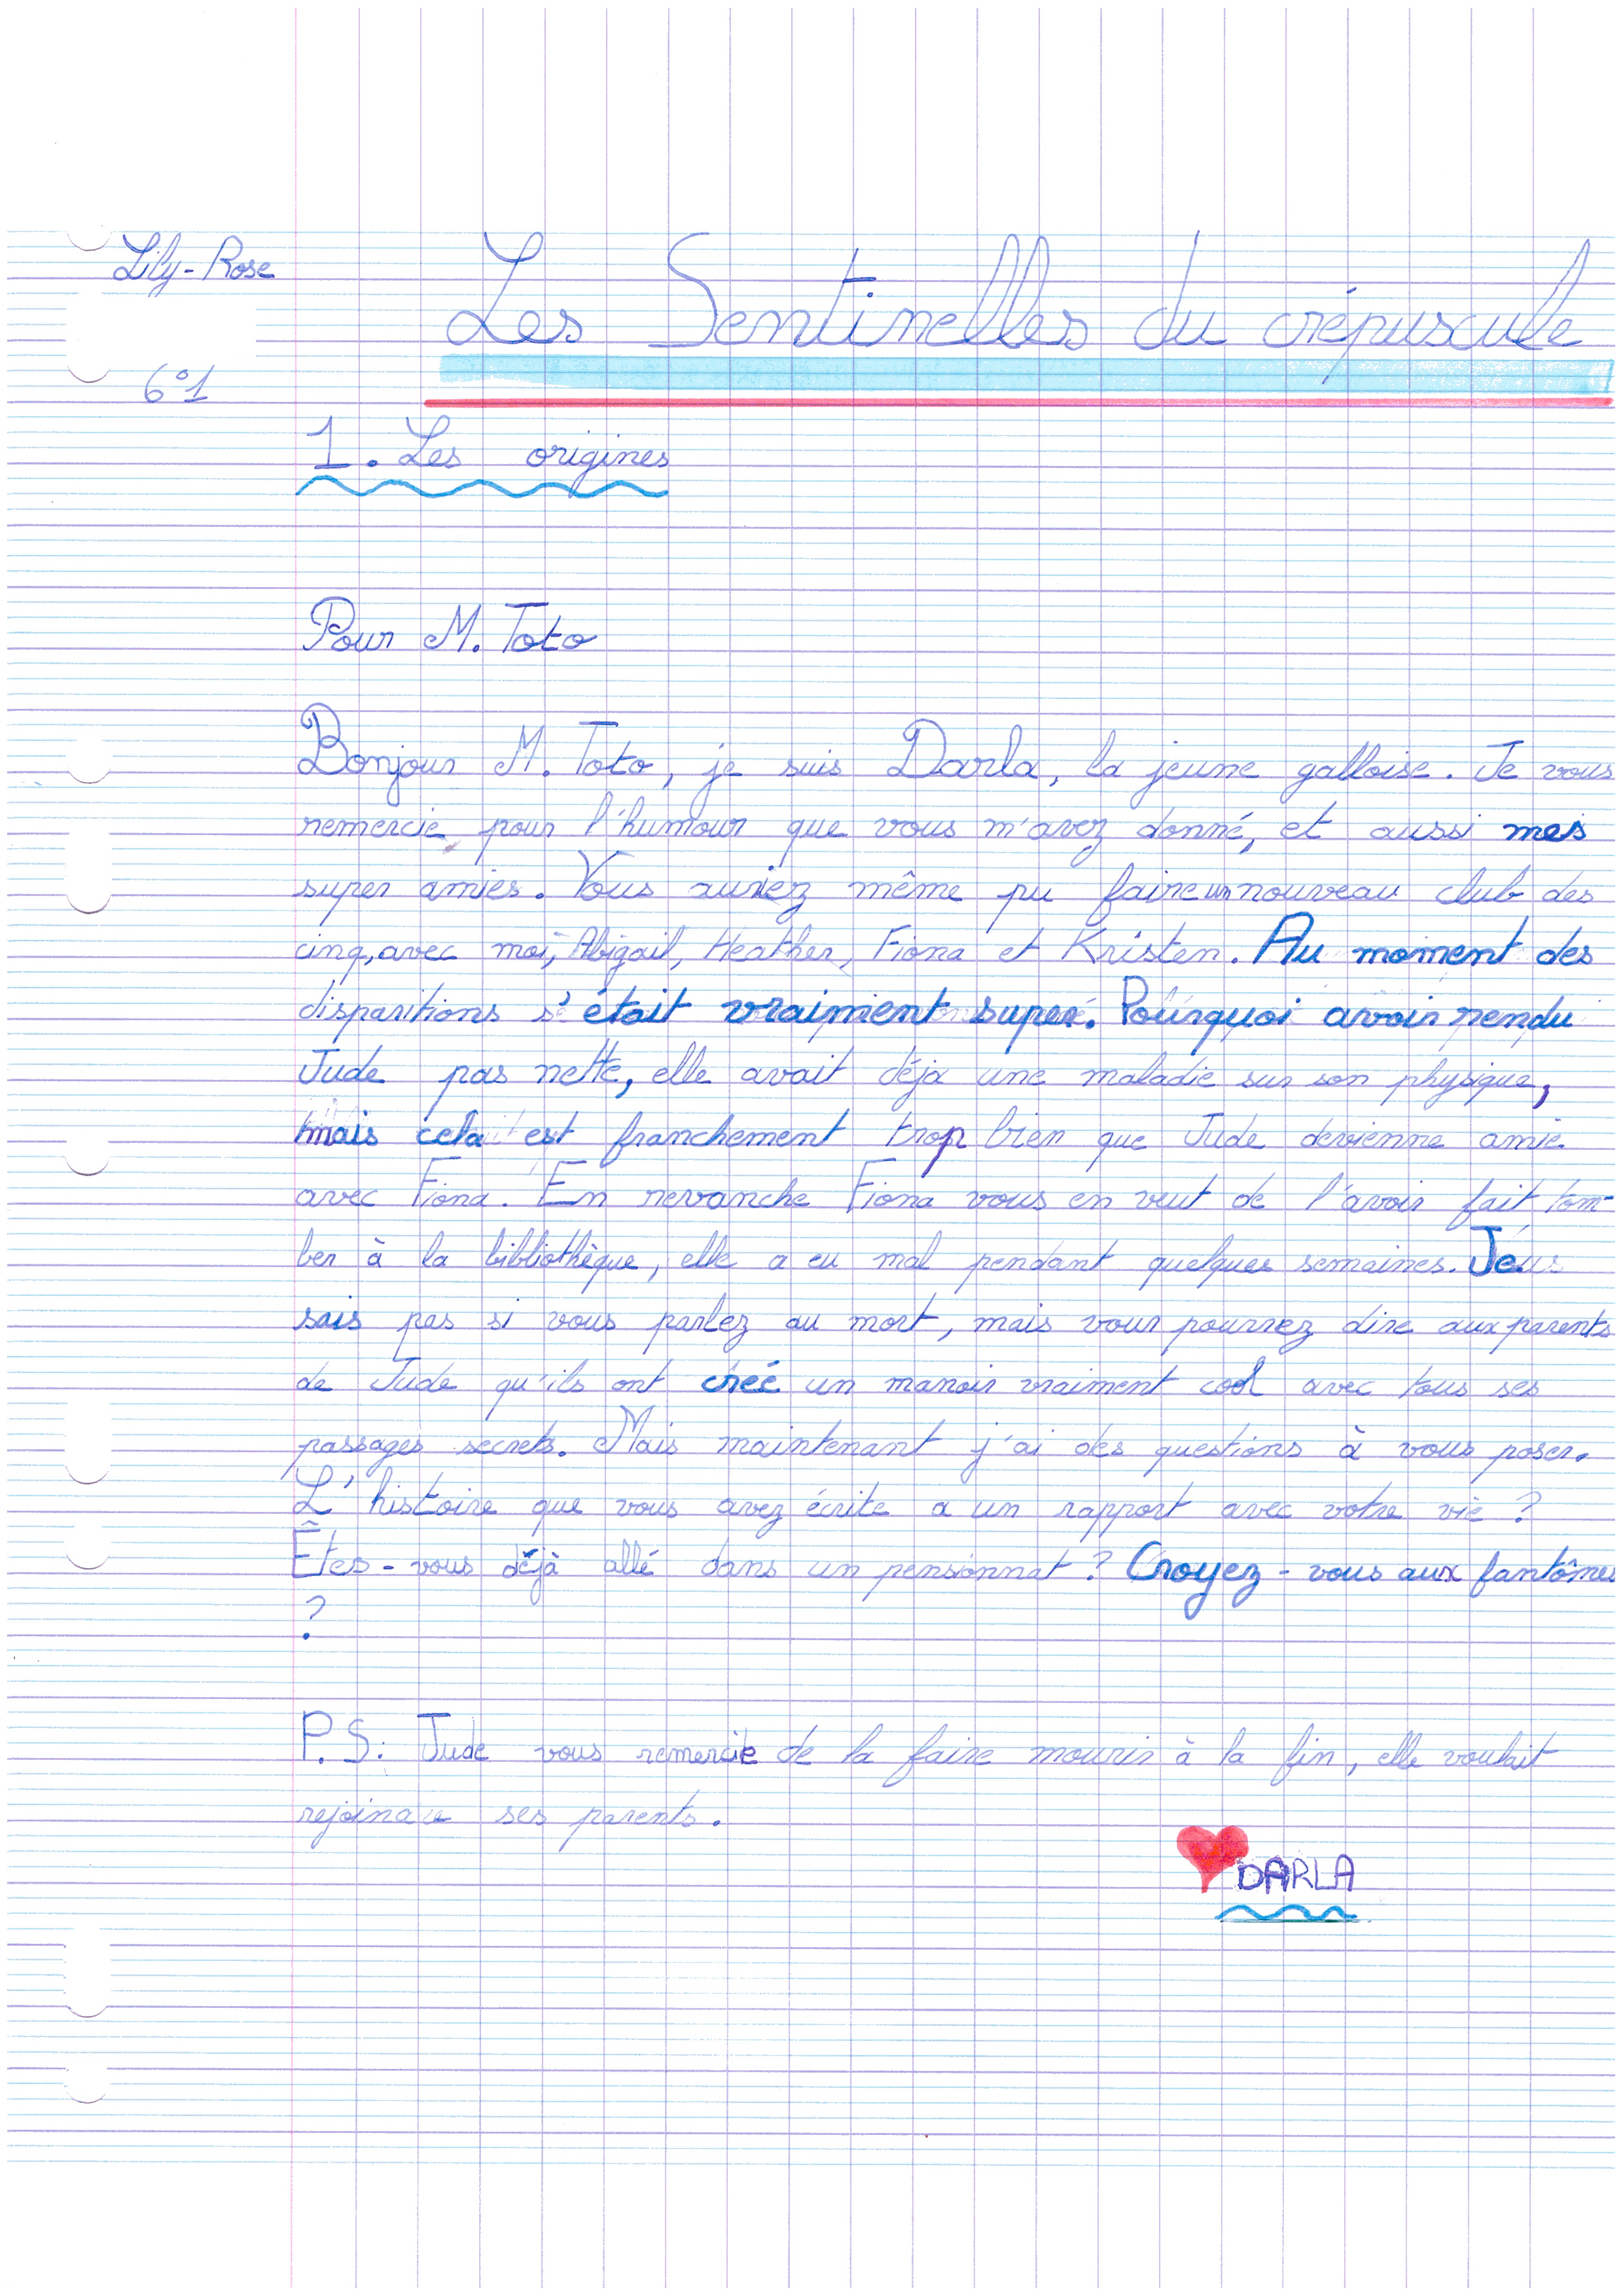 Lily-Rose
Les Sentinelles du crépuscule
6°1
1. Les origines
Pour M. Toto
Bonjour M. Toto, je suis Darla, la jeune galloise. Je vous
remercie pour l'humour que vous m'avez donné, et aussi mes
super amies. Vous auriez même pu faire un nouveau club des
cinq, avec moi, Abigail, Heather, Fiona et Kristen. Au moment des
disparitions s'était vraiment super. Pourquoi avoir rendu
Jude pas nette, elle avait déjà une maladie sur son physique,
mais cela est franchement trop bien que Jude devienne amie
avec Fiona. En revanche Fiona vous en veut de l'avoir fait tom-
ber à la bibliothèque, elle a eu mal pendant quelques semaines. Je
sais pas si vous parlez au mort, mais vous pourrez dire aux parents
de Jude qu'ils ont créé un manoir vraiment cool avec tous ses
passages secrets. Mais maintenant j'ai des questions à vous poser.
L'histoire que vous avez écrite a un rapport avec votre vie ?
Êtes-vous déjà allé dans un pensionnat ? Croyez-vous aux fantômes
?
P.S: Jude vous remercie de la faire mourir à la fin, elle voulait
rejoindre ses parents.
DARLA